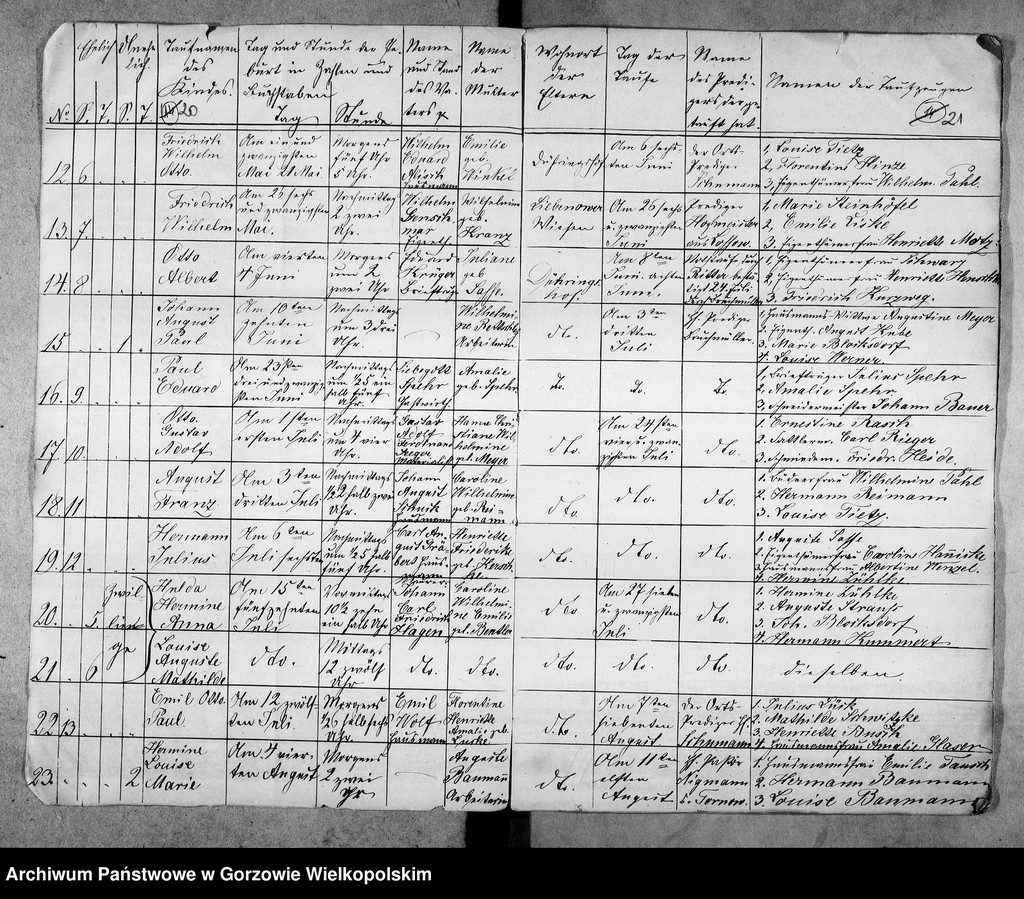 Ehelich Unehelich Taufnamen des Kindes Tag und Stunde der Geburt in Zahlen und Buchstaben Name und Stand des Vaters Name der Mutter Wohnort der Eltern Tag der Taufe Name des Predigers der getauft hat. Namen der Taufzeugen
No. S. T. S. T. 20 Tag Stunde 21
12. 6 Friedrich Wilhelm Otto. Am ein und zwanzigsten Mai 21 Mai Morgens fünf Uhr 5 Uhr Wilhelm Eduard Hausmann Emilie geb. Winkel Dühringshof Am 6 sechs Juni der Orts-Prediger Schumann
1, Louise Tietz
2, Florentine Hinze
3, Eigenthümerfrau Wilhelm. Pahl.
13. 7. Friedrich Wilhelm Am 26 sechs und zwanzigsten Mai. Nachmittag 2 zwei Uhr. Wilhelm Eigenth. Wilhelmine geb. Kranz Liebenower Wiesen Am 26 sechs u. zwanzigsten Juni Prediger Hofmeister aus
1, Marie Steinhöfel
2, Emilie Liske
3, Eigenthümerfrau Henriette
14. 8 Otto Albert Am vierten 4 Juni Morgens um 2 zwei Uhr Eduard Krüger Briefträger Juliane geb Sasse. Dührings-hof Am 8ten Juni. achten Juni. Ritter 24 Juli
1, Eigenthümerfrau Schwarz
2, Henriette
3. Friedrich Kurzweg.
15 1 Johann August Paul Am 10ten zehnten Juni Nachmittags um 3 drei Uhr. Wilhelmine Arbeiterin dto. Am 3ten dritten Juli H. Prediger Buchmüller.
1. Hausmanns-Wittwe Augustine Meyer
2. Eigenth. August
3. Marie Bloksdorf
4. Louise Werner.
16. 9. Paul Eduard Am 23sten drei und zwanzigsten Juni Nachmittags um ½5 ein halb fünf Uhr. Liebegott Spehr Gastwirth Amalie geb. Spehr do. do. do.
1. Briefträger Julius Spehr
2 Amalie Spehr
3, Schneidermeister Johann Bauer
17 10 Otto. Gustav Adolf Am 1sten ersten Juli Nachmittags um 4 vier Uhr. Gustav Adolf Ferdinand Rieger Hanne Christiane Wilhelmine geb. Meyer dto. Am 24sten vier u. zwanzigsten Juli dto.
1 Ernestine Rasch
2. Sattlerm. Carl Rieger
3. Schmiedem. Friedr. Heide.
18. 11 August Franz Am 3ten dritten Juli Nachmittags ½2 halb zwei Uhr. Johann August Hausmann Caroline Wilhelmine geb. Reimann dto. dto. dto.
1. Wilhelmine Pahl
2. Hermann Reimann
3. Louise Tietz.
19. 12. Hermann Julius Am 6ten Juli sechsten Nachmittags um ½5 halb fünf Uhr. Carl August Hausmann Henriette Friederike geb. dto. dto. dto.
1. Auguste Sasse
2. Eigenthümerfrau Caroline
3 Hausmannsfrau Albertine Wenzel.
4. Hermine Lühlke
20. 5 Zwillinge Hulda Hermine Anna Am 15ten fünfzehnten Juli Vormittags 10½ zehn ein halb Uhr Johann Carl Friedrich Hagen Caroline Wilhelmine Emilie geb. dto Am 27 sieben u. zwanzigsten Juli dto.
1. Hermine Lühlke
2. Auguste Strauß
3. Joh. Bloksdorf
4. Hermann Kummert
21 6 Louise Auguste Mathilde dto. Mittags 12 zwölf Uhr dto. dto. dto. dto. dto. dieselben.
22 13 Emil Otto Paul Am 12 zwölften Juli Morgens ½6 halb sechs Uhr. Emil Wolf Hausmann Florentine Henriette Amalie geb. dto. Am 7ten siebenten August Der Orts-Prediger H Schumann
1. Julius
2. Mathilde
3. Henriette Busch
4. Hausmannsfrau Amalie Glaser
23. 2 Hermine Louise Marie Am 4 vierten August Morgens 2 zwei Uhr Auguste Baumann Arbeiterin dto. Am 11ten elften August H. Pastor
1. Hausmannsfrau Emilie
2. Hermann Baumann
3. Louise Baumann
Archiwum Państwowe w Gorzowie Wielkopolskim